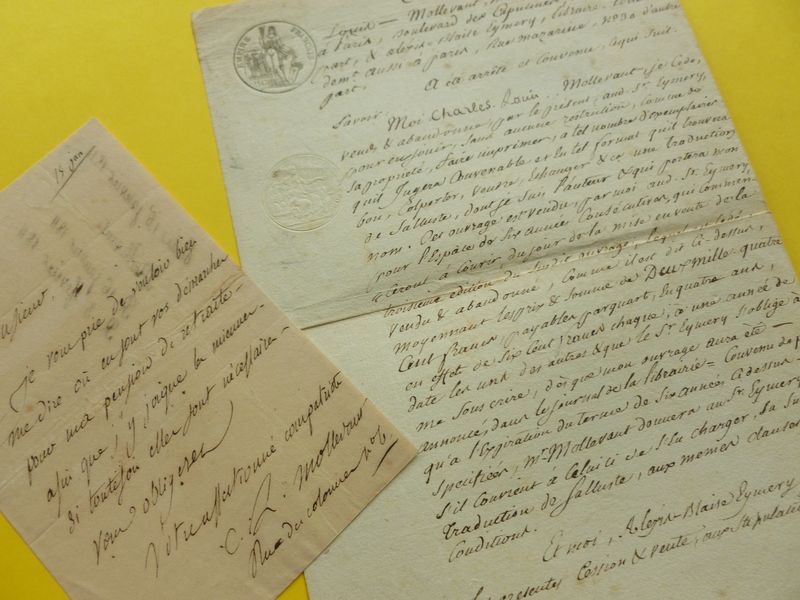 Louis - Mollevaut,
à Paris, boulevard des Capucines
part, & alexis-Blaise Eymery, libraire
demt. aussi à paris, Rue mazarine, No. 30 d'autre
part.
A été arrêté et Convenu, Cequi Suit.
Savoir
Moi Charles-Louis Mollevaut, je Cède,
vend & abandonne, par le présent, aud. Sr. Eymery,
pour en jouir, Sans aucune restriction, Comme de
Sa propriété, faire imprimer, a tel nombre d'exemplaires
quil Jugera Convenable et en tel format quil trouvera
bon, Colporter, vendre, échanger & ce une traduction
de Salluste, dont je Suis l'auteur & qui portera mon
nom. Cet ouvrage est vendu, par moi aud. Sr. Eymery
pour l'Espace de Six années Consécutives, qui Commen-
-ceront à Courir du jour de la mise en vente de la
troisieme édition du Susdit ouvrage,
vendu & abandonné, Comme il est dit Ci-dessus,
moyennant le prix & Somme de Deux mille quatre
Cent francs, payables par quart, En quatre ans,
en effet de Six Cent francs chaque, a une année de
date les uns des autres & que le Sr. Eymery S'oblige à
me Souscrire, dès que mon ouvrage aura été
annoncé, dans le journal de la librairie = Convenu de p
qu'à l'Expiration du terme de Six années a dessus
Specifiées, Mr. Mollevaut donnera au Sr. Eymery
S'il Convient à Celui Ci de S'en charger, la Su
Traduction de Salluste, aux memes clauses
Conditions.
Et moi, Alexis-Blaise Eymery
présentes Cession & vente, aux Stipulation
15 jan
Monsieur,
je vous prie de vouloir bien
me dire où en sont vos démarches
pour ma pension de retraite
afin que j'y joigne les miennes
si toutefois elles sont nécessaires
Vous obligerez
Votre affectionné compatriote
C. L. Mollevaut
Rue du colombier no. 6